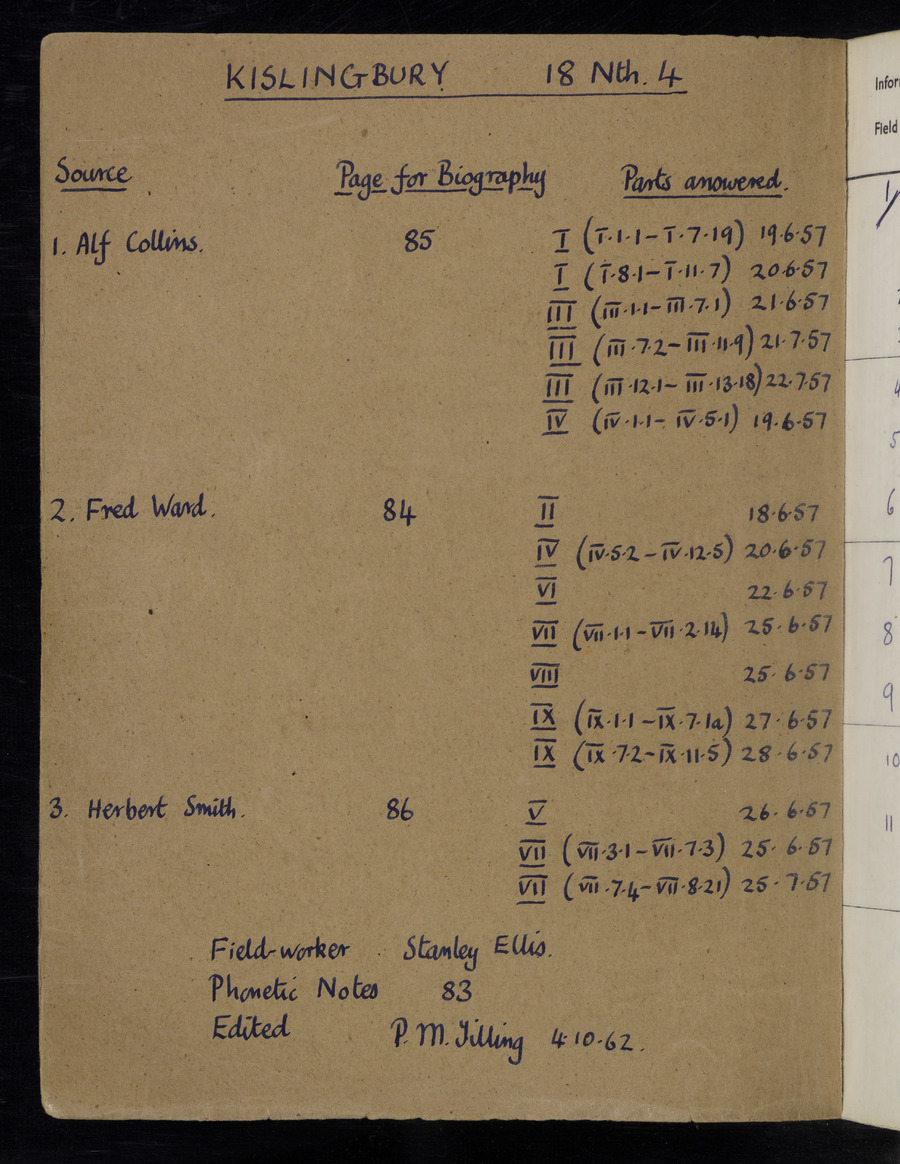 KISLINGBURY 18 Nth. 4
Source Page for Biography Parts answered.
1. Alf Collins. 85 I (I.1.1–I.7.19) 19.6.57
I (I.8.1–I.11.7) 20.6.57
III (III.1.1–III.7.1) 21.6.57
III (III.7.2–III.11.9) 21.7.57
III (III.12.1–III.13.18) 22.7.57
IV (IV.1.1–IV.5.1) 19.6.57
2. Fred Ward. 84 II 18.6.57
IV (IV.5.2–IV.12.5) 20.6.57
VI 22.6.57
VII (VII.1.1–VII.2.14) 25.6.57
VIII 25.6.57
IX (IX.1.1–IX.7.1a) 27.6.57
IX (IX.7.2–IX.11.5) 28.6.57
3. Herbert Smith. 86 V 26.6.57
VII (VII.3.1–VII.7.3) 25.6.57
VII (VII.7.4–VII.8.21) 25.7.57
Field-worker Stanley Ellis.
Phonetic Notes 83
Edited P. M. Tilling 4.10.62.
Field
1
4
5
6
7
8
9
10
11